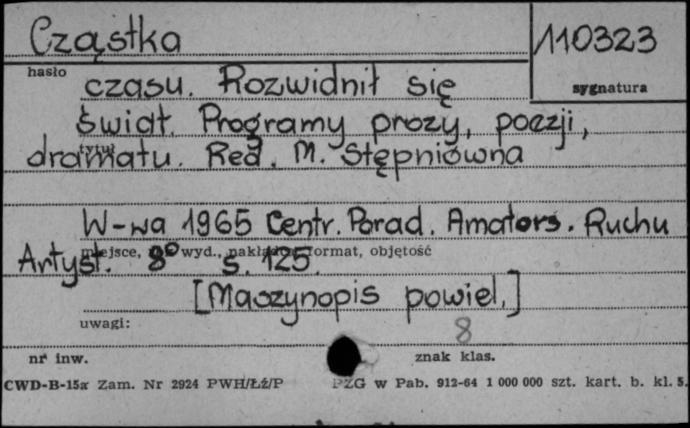 Cząstka
110323
hasło
sygnatura
czasu. Rozwidnił się
świat. Programy prozy, poezji,
tytuł
dramatu. Red. M. Stępniówna
W-wa 1965 Centr. Porad. Amators. Ruchu
miejsce, wyd., nakład, format, objętość
Artyst. 8° s. 125.
[Maszynopis powiel.]
uwagi:
8
nr inw.
znak klas.
CWD-B-15a Zam. Nr 2924 PWH/Łź/P
PZG w Pab. 912-64 1 000 000 szt. kart. b. kl. 5.